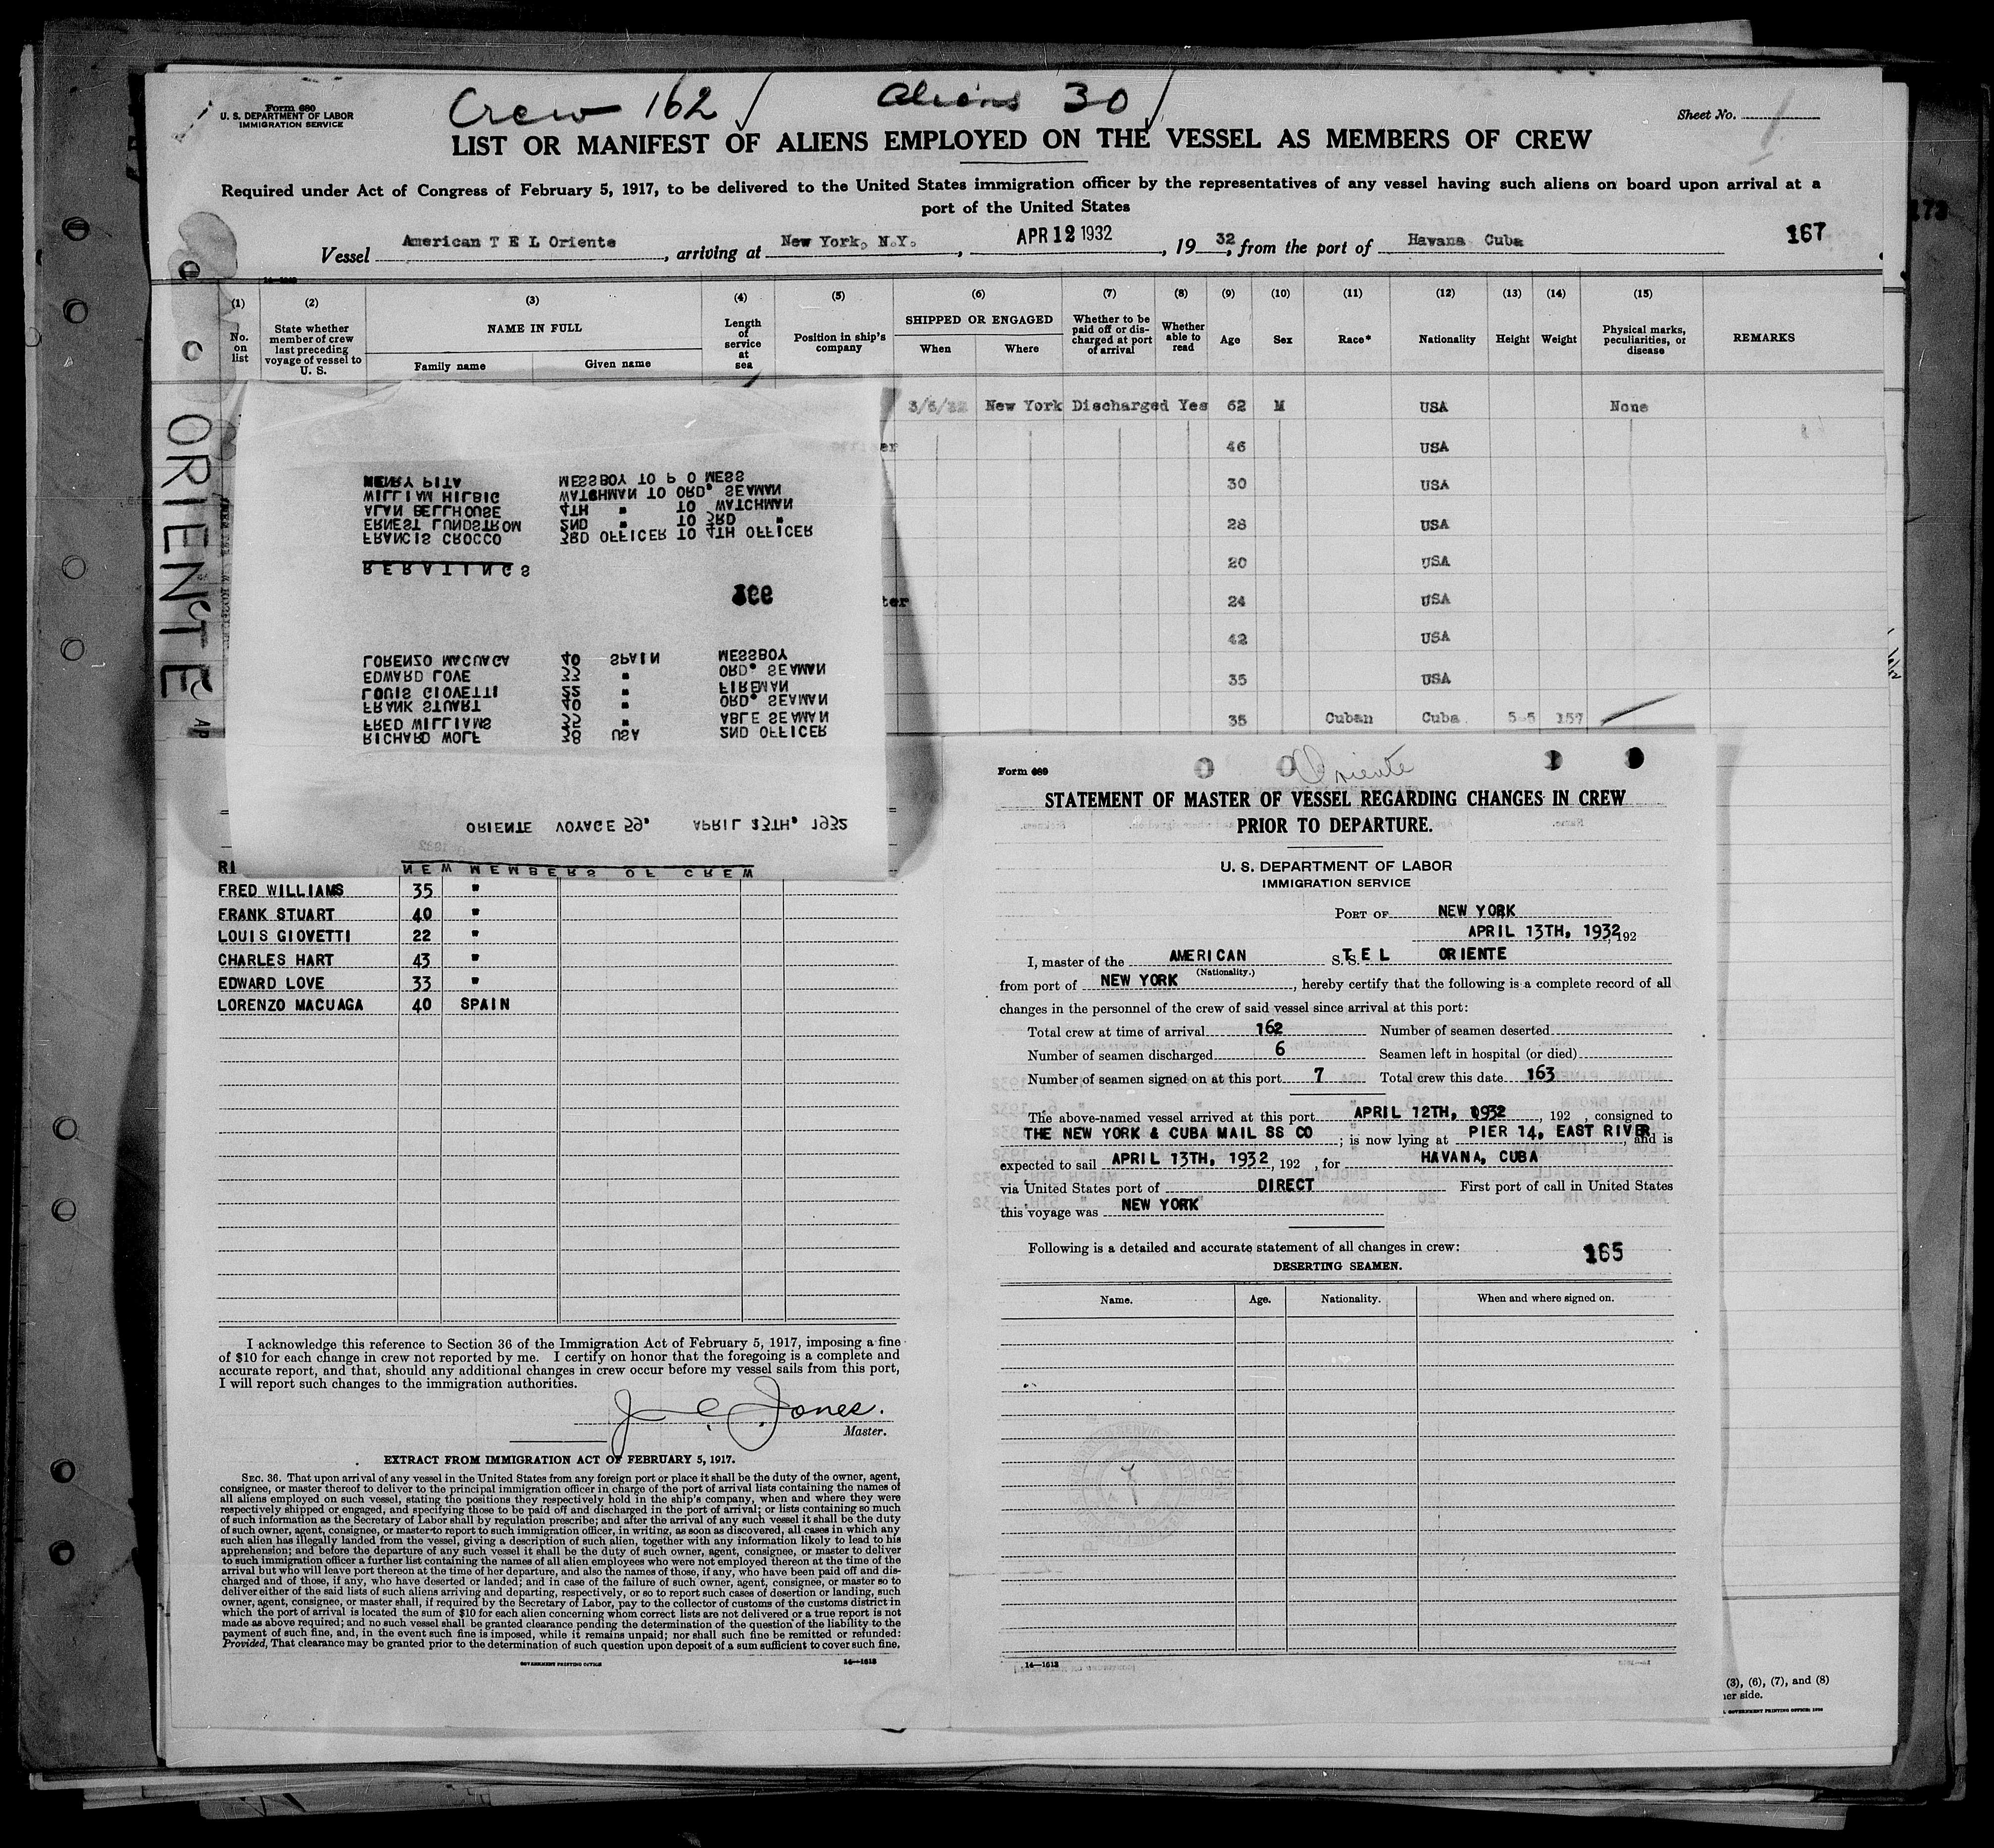 Crew 162 / Aliens 30 /
Form 680
U. S. DEPARTMENT OF LABOR
IMMIGRATION SERVICE
Sheet No. 1
LIST OR MANIFEST OF ALIENS EMPLOYED ON THE VESSEL AS MEMBERS OF CREW
Required under Act of Congress of February 5, 1917, to be delivered to the United States immigration officer by the representatives of any vessel having such aliens on board upon arrival at a
port of the United States
Vessel American T E L Oriente, arriving at New York, N.Y., APR 12 1932, 19 32, from the port of Havana Cuba
167
(1) (2) (3) (4) (5) (6) (7) (8) (9) (10) (11) (12) (13) (14) (15)
No. on list
State whether member of crew last preceding voyage of vessel to U. S.
NAME IN FULL
Family name Given name
Length of service at sea
Position in ship's company
SHIPPED OR ENGAGED
When Where
Whether to be paid off or discharged at port of arrival
Whether able to read
Age
Sex
Race*
Nationality
Height
Weight
Physical marks, peculiarities, or disease
REMARKS
New York Discharged Yes 62 M USA None
er 46 USA
30 USA
28 USA
20 USA
ter 24 USA
42 USA
35 USA
35 Cuban Cuba 5-5 157
ORIENTE
ORIENTE VOYAGE 59. APRIL 13TH, 1932
NEW MEMBERS OF CREW
RICHARD WOLF 38 USA 2ND OFFICER
FRED WILLIAMS 35 " ABLE SEAMAN
FRANK STUART 40 " ORD. SEAMAN
LOUIS GIOVETTI 22 " FIREMAN
EDWARD LOVE 33 " ORD. SEAMAN
LORENZO MACUAGA 40 SPAIN MESSBOY
166
RERATINGS
FRANCIS CROCCO 3RD OFFICER TO 4TH OFFICER
ERNEST LUNDSTROM 2ND " TO 3RD "
ALAN BELLHOUSE 4TH " TO WATCHMAN
WILLIAM HILBIG WATCHMAN TO ORD. SEAMAN
HENRY PITA MESSBOY TO P O MESS
RI
FRED WILLIAMS 35 "
FRANK STUART 40 "
LOUIS GIOVETTI 22 "
CHARLES HART 43 "
EDWARD LOVE 33 "
LORENZO MACUAGA 40 SPAIN
I acknowledge this reference to Section 36 of the Immigration Act of February 5, 1917, imposing a fine
of $10 for each change in crew not reported by me. I certify on honor that the foregoing is a complete and
accurate report, and that, should any additional changes in crew occur before my vessel sails from this port,
I will report such changes to the immigration authorities.
J C Jones.
Master.
EXTRACT FROM IMMIGRATION ACT OF FEBRUARY 5, 1917.
SEC. 36. That upon arrival of any vessel in the United States from any foreign port or place it shall be the duty of the owner, agent,
consignee, or master thereof to deliver to the principal immigration officer in charge of the port of arrival lists containing the names of
all aliens employed on such vessel, stating the positions they respectively hold in the ship's company, when and where they were
respectively shipped or engaged, and specifying those to be paid off and discharged in the port of arrival; or lists containing so much
of such information as the Secretary of Labor shall by regulation prescribe; and after the arrival of any such vessel it shall be the duty
of such owner, agent, consignee, or master to report to such immigration officer, in writing, as soon as discovered, all cases in which any
such alien has illegally landed from the vessel, giving a description of such alien, together with any information likely to lead to his
apprehension; and before the departure of any such vessel it shall be the duty of such owner, agent, consignee, or master to deliver
to such immigration officer a further list containing the names of all alien employees who were not employed thereon at the time of the
arrival but who will leave port thereon at the time of her departure, and also the names of those, if any, who have been paid off and dis-
charged and of those, if any, who have deserted or landed; and in case of the failure of such owner, agent, consignee, or master so to
deliver either of the said lists of such aliens arriving and departing, respectively, or so to report such cases of desertion or landing, such
owner, agent, consignee, or master shall, if required by the Secretary of Labor, pay to the collector of customs of the customs district in
which the port of arrival is located the sum of $10 for each alien concerning whom correct lists are not delivered or a true report is not
made as above required; and no such vessel shall be granted clearance pending the determination of the question of the liability to the
payment of such fine, and, in the event such fine is imposed, while it remains unpaid; nor shall such fine be remitted or refunded:
Provided, That clearance may be granted prior to the determination of such question upon deposit of a sum sufficient to cover such fine.
GOVERNMENT PRINTING OFFICE 14—1613
Form 689
Oriente
STATEMENT OF MASTER OF VESSEL REGARDING CHANGES IN CREW
PRIOR TO DEPARTURE.
U. S. DEPARTMENT OF LABOR
IMMIGRATION SERVICE
PORT OF NEW YORK
APRIL 13TH, 1932, 192
I, master of the AMERICAN S.S. T E L ORIENTE
(Nationality.)
from port of NEW YORK, hereby certify that the following is a complete record of all
changes in the personnel of the crew of said vessel since arrival at this port:
Total crew at time of arrival 162 Number of seamen deserted
Number of seamen discharged 6 Seamen left in hospital (or died)
Number of seamen signed on at this port 7 Total crew this date 163
The above-named vessel arrived at this port APRIL 12TH, 1932, 192 , consigned to
THE NEW YORK & CUBA MAIL SS CO; is now lying at PIER 14, EAST RIVER, and is
expected to sail APRIL 13TH, 1932, 192 , for HAVANA, CUBA
via United States port of DIRECT First port of call in United States
this voyage was NEW YORK
Following is a detailed and accurate statement of all changes in crew: 165
DESERTING SEAMEN.
Name. Age. Nationality. When and where signed on.
14—1613
(3), (6), (7), and (8)
ner side.
GOVERNMENT PRINTING OFFICE
173